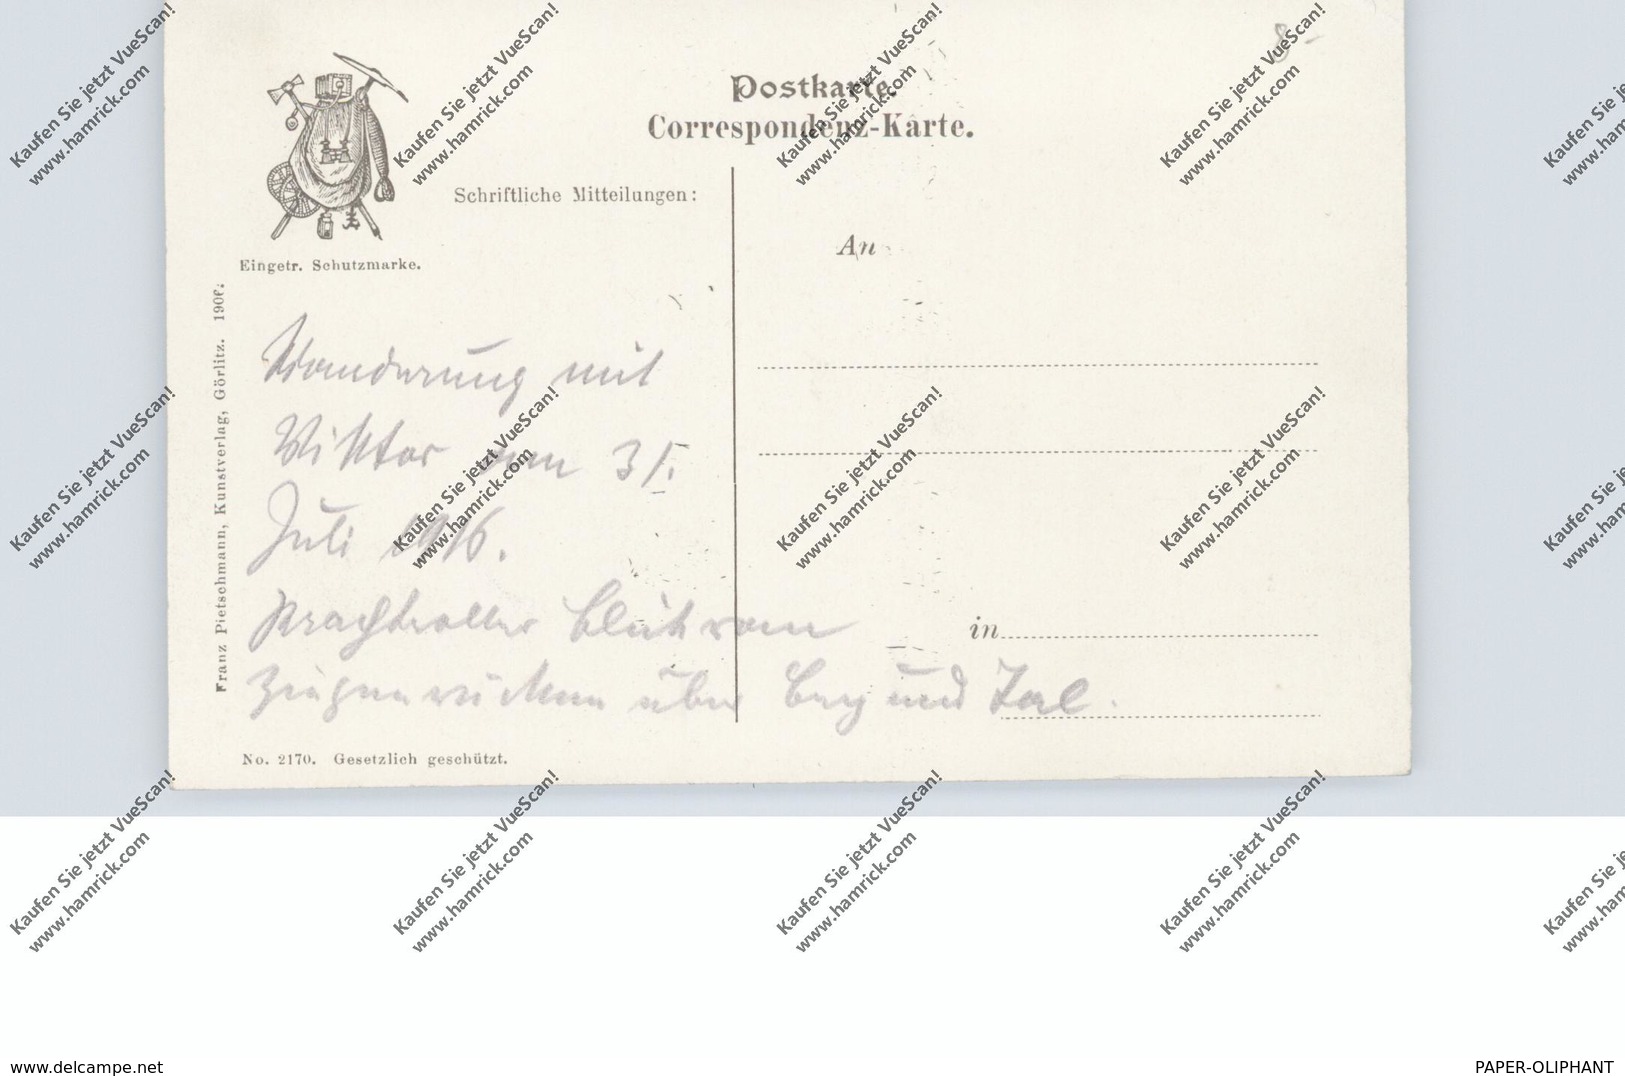 8-
Postkarte.
Correspondenz-Karte.
Schriftliche Mitteilungen:
An
Eingetr. Schutzmarke.
Franz Pietschmann, Kunstverlag, Görlitz. 1906.
Wanderung mit
Viktor am 31.
Juli 1916.
Prachtvoller Blick vom
Ziegenrücken über Berg und Tal.
in
No. 2170. Gesetzlich geschützt.
Kaufen Sie jetzt VueScan!
www.hamrick.com
www.delcampe.net
PAPER-OLIPHANT